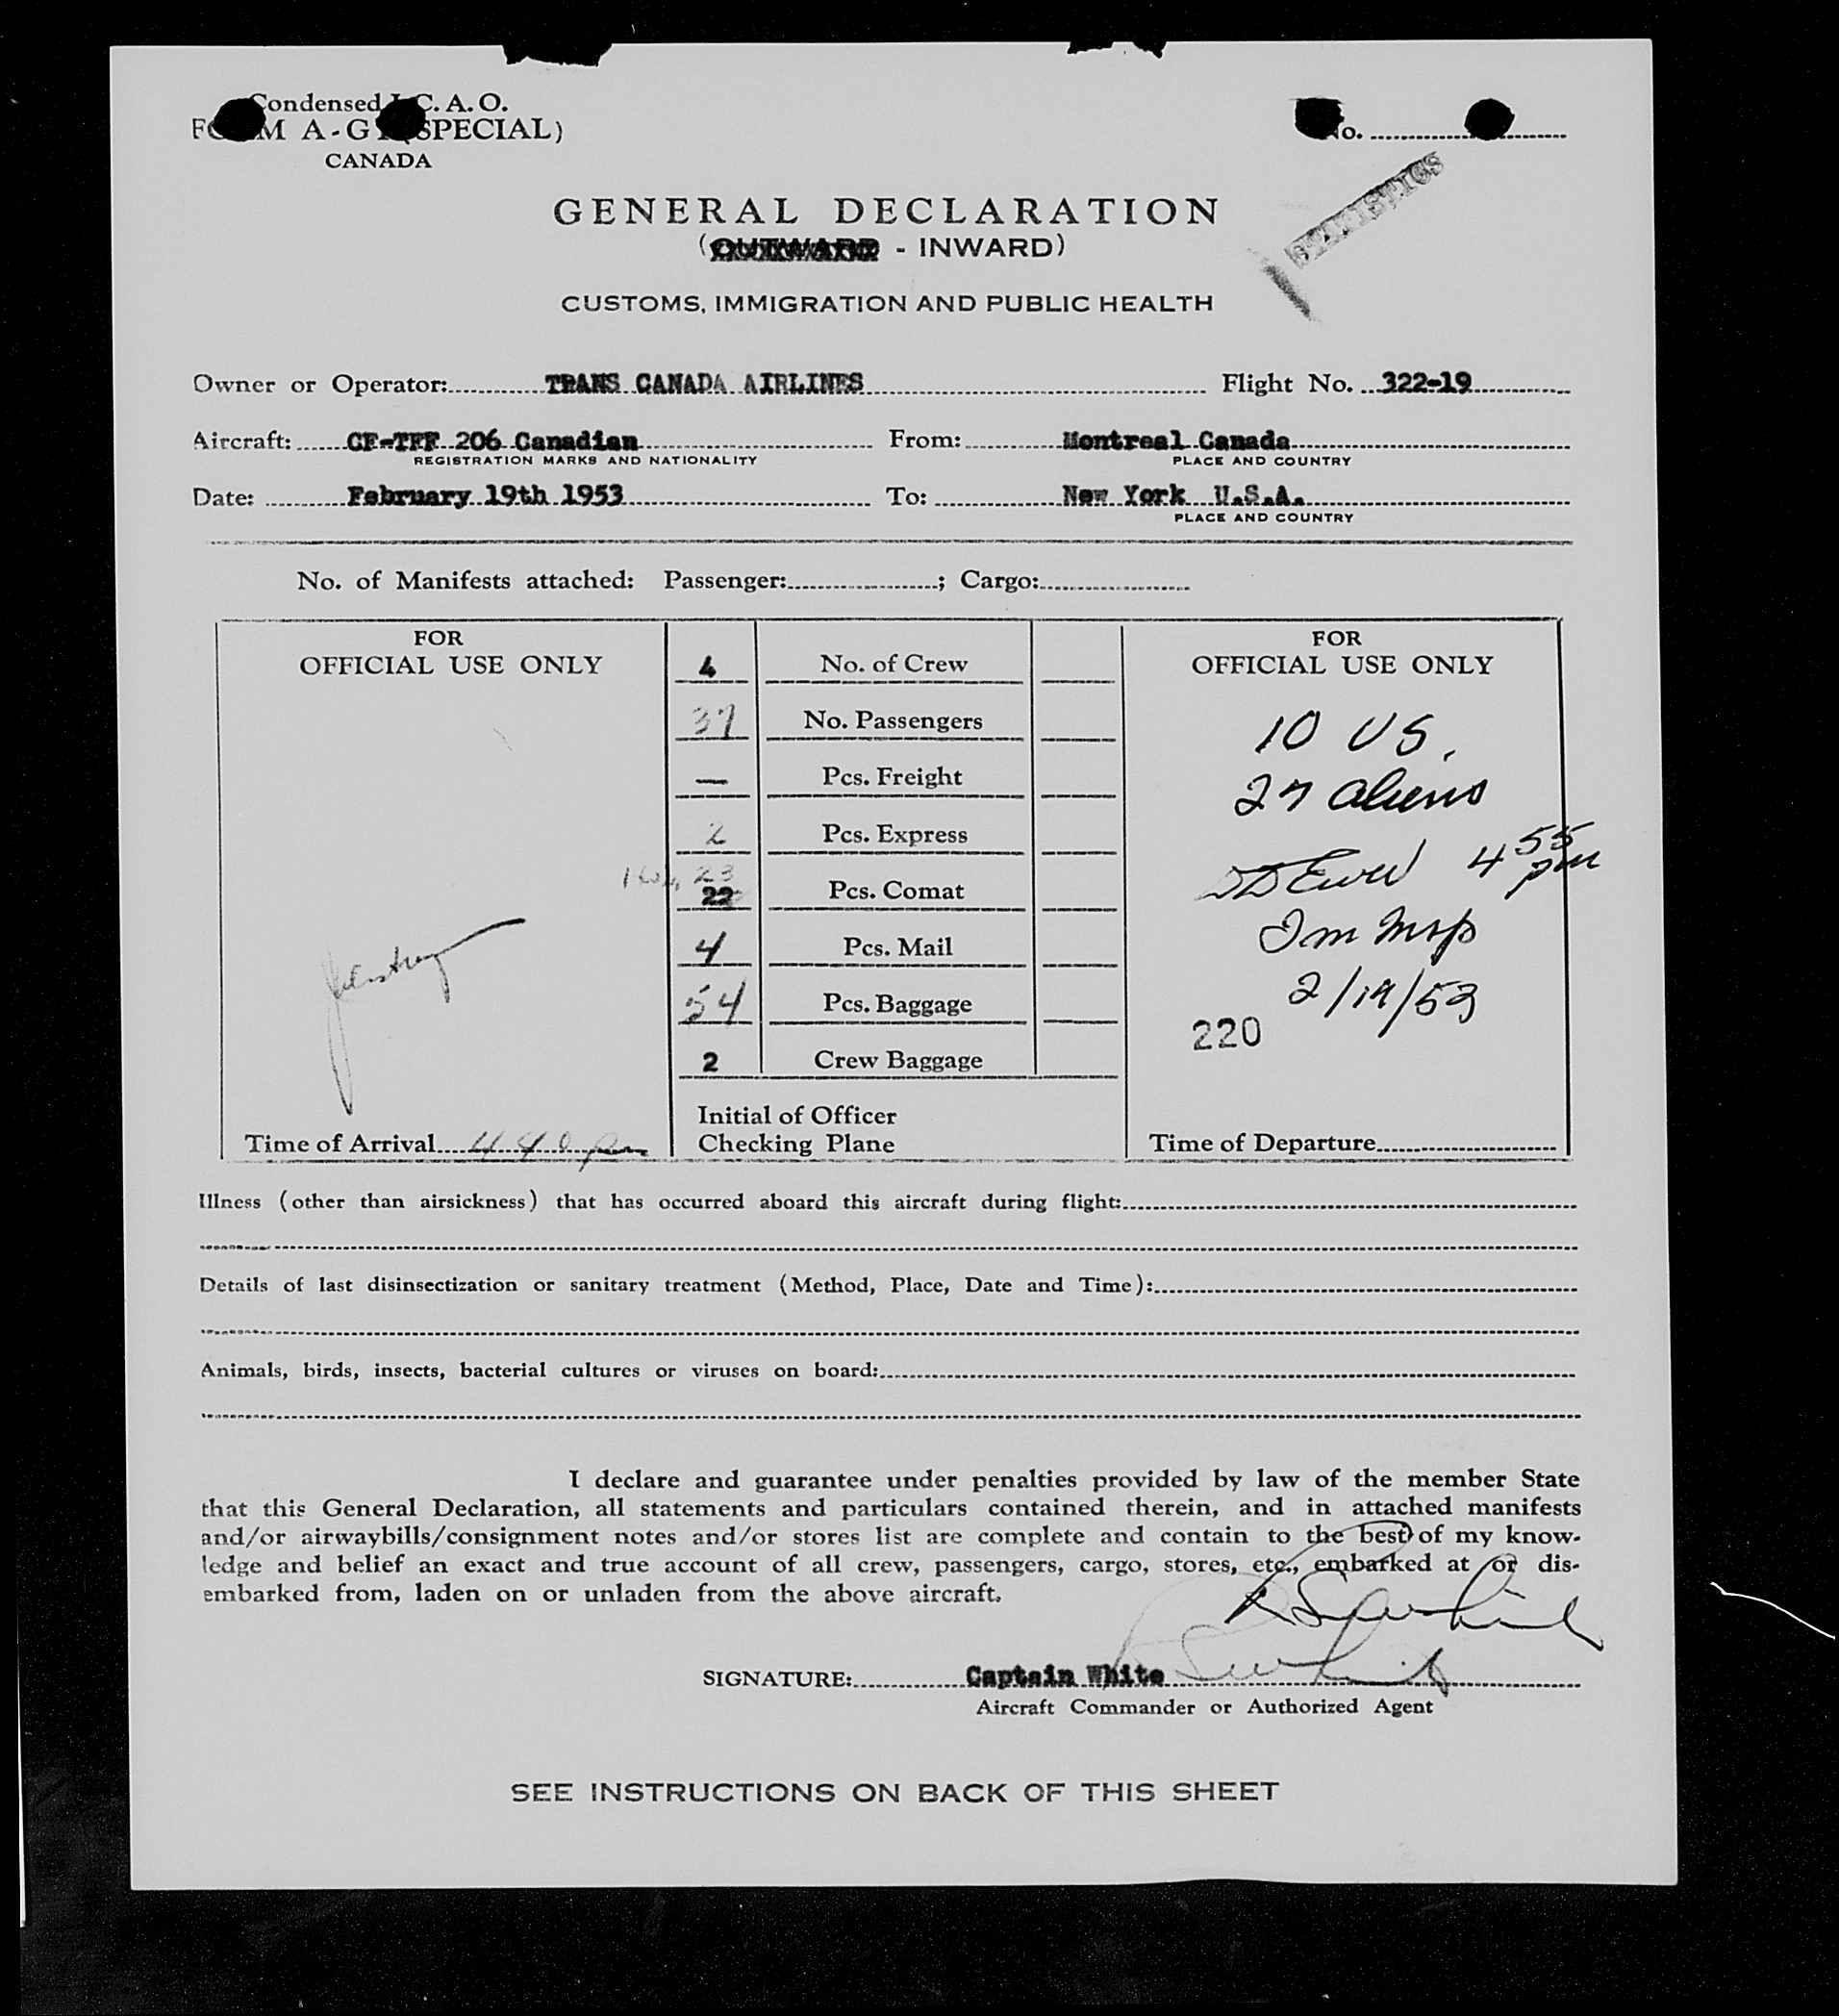 Condensed I. C. A. O.
FORM A-G 1 (SPECIAL)
CANADA
No.
STATISTICS
GENERAL DECLARATION
(OUTWARD - INWARD)
CUSTOMS, IMMIGRATION AND PUBLIC HEALTH
Owner or Operator: TRANS CANADA AIRLINES Flight No. 322-19
Aircraft: CF-TFF 206 Canadian From: Montreal Canada
REGISTRATION MARKS AND NATIONALITY PLACE AND COUNTRY
Date: February 19th 1953 To: New York U.S.A.
PLACE AND COUNTRY
No. of Manifests attached: Passenger: ; Cargo:
FOR
OFFICIAL USE ONLY
Time of Arrival 4 40 pm
4 No. of Crew
37 No. Passengers
— Pcs. Freight
2 Pcs. Express
23
22 Pcs. Comat
4 Pcs. Mail
54 Pcs. Baggage
2 Crew Baggage
Initial of Officer
Checking Plane
FOR
OFFICIAL USE ONLY
10 US.
27 aliens
4 55 pm
Im Insp
2/19/53
220
Time of Departure
Illness (other than airsickness) that has occurred aboard this aircraft during flight:
Details of last disinsectization or sanitary treatment (Method, Place, Date and Time):
Animals, birds, insects, bacterial cultures or viruses on board:
I declare and guarantee under penalties provided by law of the member State
that this General Declaration, all statements and particulars contained therein, and in attached manifests
and/or airwaybills/consignment notes and/or stores list are complete and contain to the best of my know-
ledge and belief an exact and true account of all crew, passengers, cargo, stores, etc., embarked at or dis-
embarked from, laden on or unladen from the above aircraft.
SIGNATURE: Captain White
Aircraft Commander or Authorized Agent
SEE INSTRUCTIONS ON BACK OF THIS SHEET